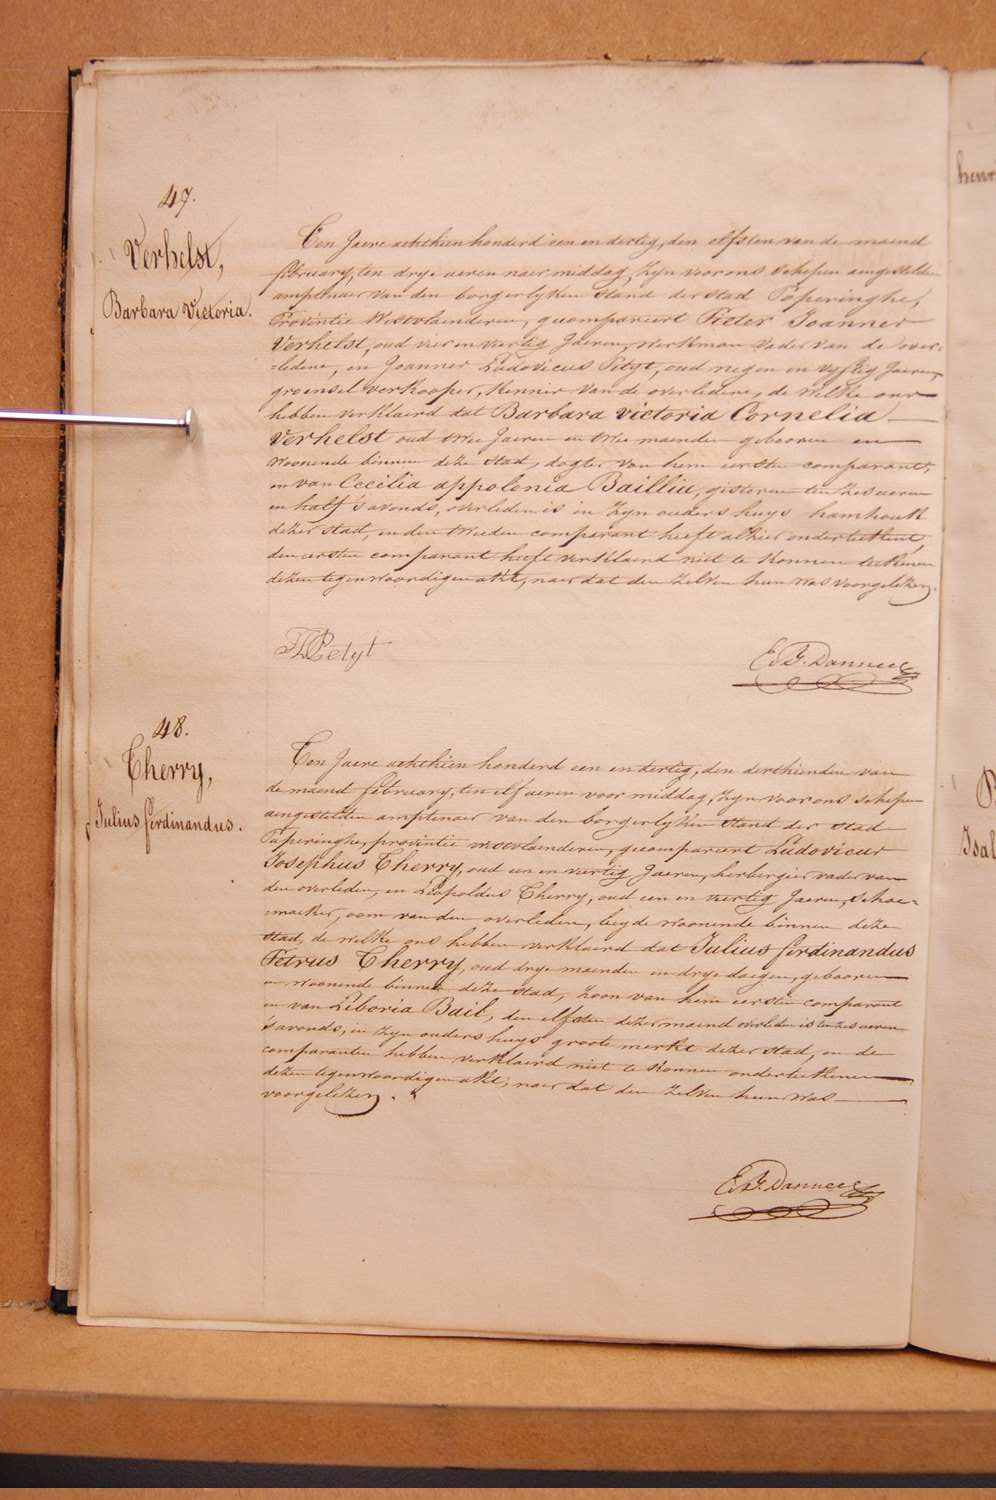 47.
Verhelst,
Barbara Victoria.
Ten Jaere achthien honderd een en dertig, den elfsten van de maend
february, ten drye ueren naer middag, zyn voor ons schepen aengestelde
amptenaer van den borgerlyken stand der stad Poperinghe,
Provintie Westvlaenderen, gecompareert Pieter Joannes
Verhelst, oud vier en viertig Jaeren, werkman vader van de over-
=ledene, en Joannes Ludovicus Petyt, oud negen en vyftig Jaeren,
groensel verkooper, kennis van de overledene, de welke ons
hebben verklaerd dat Barbara victoria Cornelia
Verhelst oud twee Jaeren en twee maenden gebooren en
woonende binnen deze stad, dogter van hem eersten comparant,
en van Cecilia appolonia Baillie, gisteren ten zes ueren
en half s'avonds, overleden is in zyn ouders huys hamhoek
dezer stad, en den tweeden comparant heeft alhier onderteekent,
den eersten comparant heeft verklaerd niet te konnen teekenen
dezen tegenwoordigen akt, naer dat den zelven hun was voorgelezen.
JL Petyt
E. F. Dannee
48.
Therry,
Julius ferdinandus.
Ten Jaere achthien honderd een en dertig, den derthienden van
de maend february, ten elf ueren voor middag, zyn voor ons schepen
aengestelden amptenaer van den borgerlyken stand der stad
Poperinghe, provintie westvlaenderen, gecompareert Ludovicus
Josephus Therry, oud een en viertig Jaeren, herbergier vader van
den overleden, en Leopoldus Therry, oud een en viertig Jaeren, schoe-
maeker, oom van den overleden, beyde woonende binnen deze
stad, de welke ons hebben verklaerd dat Julius ferdinandus
Petrus Therry, oud drye maenden en drye daegen, gebooren
en woonende binnen deze stad, zoon van hem eersten comparant
en van Liboria Bail, den elfsten dezer maend overleden is ten zes ueren
s'avonds, in zyn ouders huys groote merkt dezer stad, en de
comparanten hebben verklaerd niet te konnen onderteekenen
dezen tegenwoordigen akt, naer dat den zelven hun was
voorgelezen.
E. F. Dannee
henr
Isal